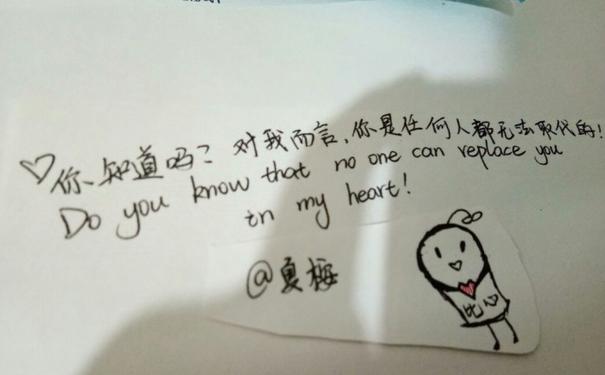 ♡你、知道吗？对我而言，你是任何人都无法取代的！
Do you know that no one can replace you
in my heart!
@夏梅
比心